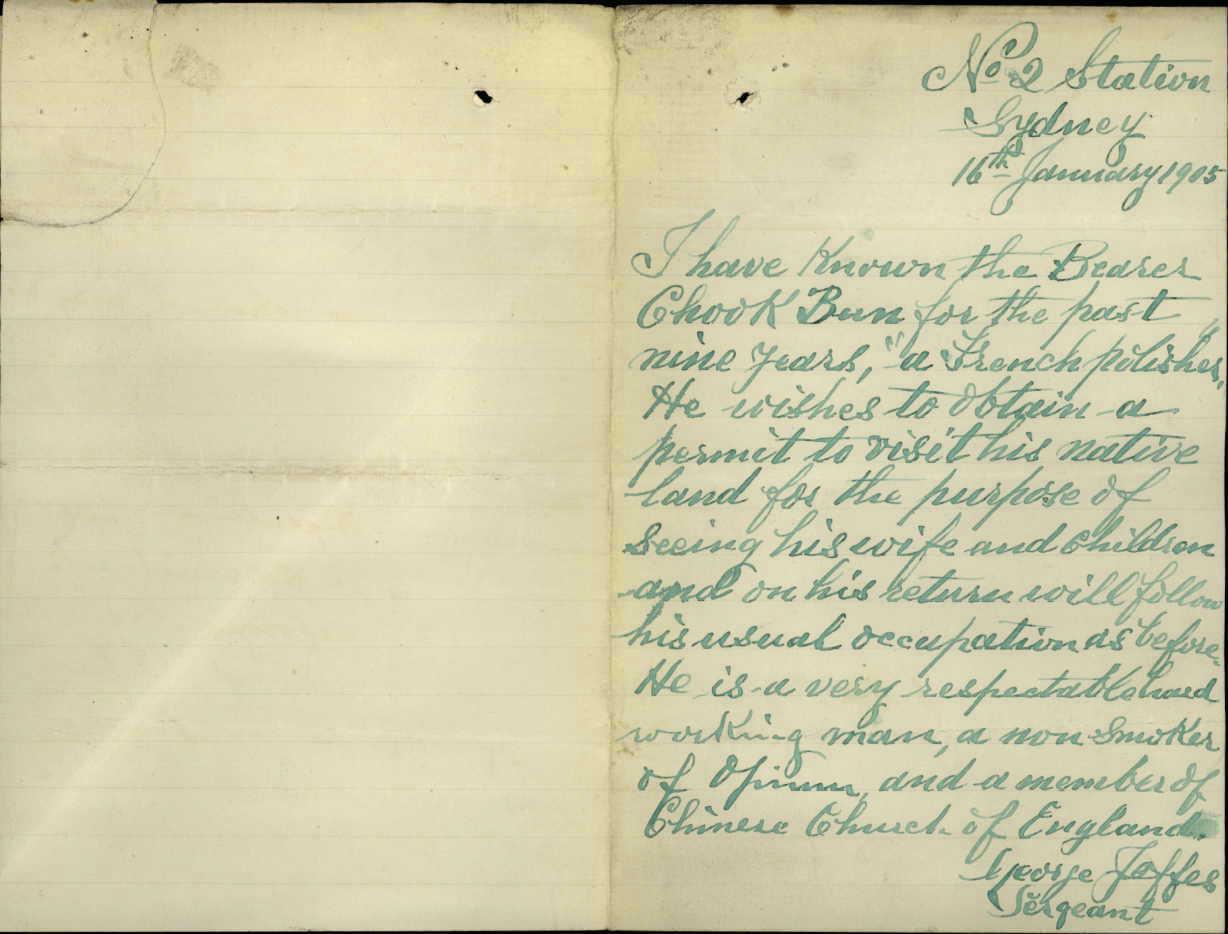 No. 2 Station
Sydney
16th January 1905
I have Known the Bearer
Chook Bun for the past
nine years, "a French polisher,"
He wishes to obtain a
permit to visit his native
land for the purpose of
seeing his wife and children
and on his return will follow
his usual occupation as before.
He is a very respectable hard
working man, a non smoker
of Opium, and a member of
Chinese Church of England.
George
Sergeant